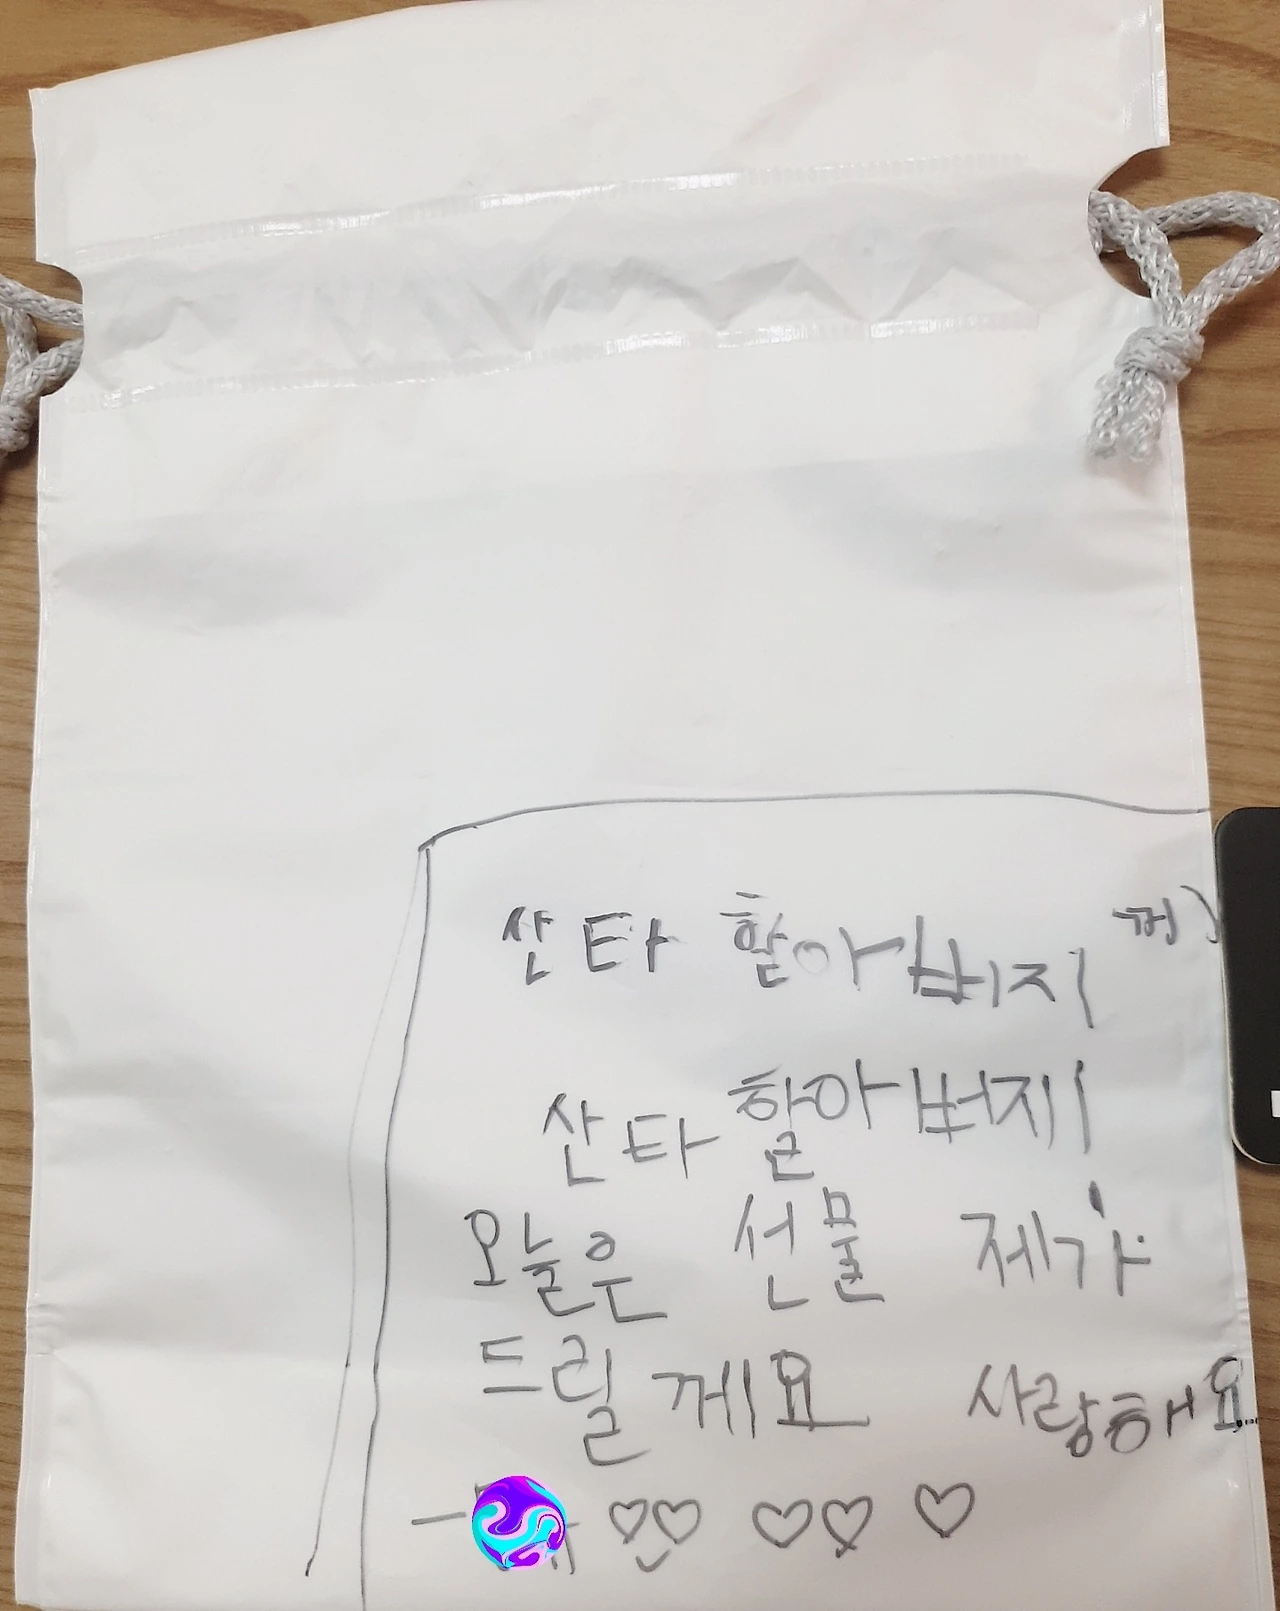 산타 할아버지 께)
산타 할아버지
오늘은 선물 제가
드릴게요 사랑해요...